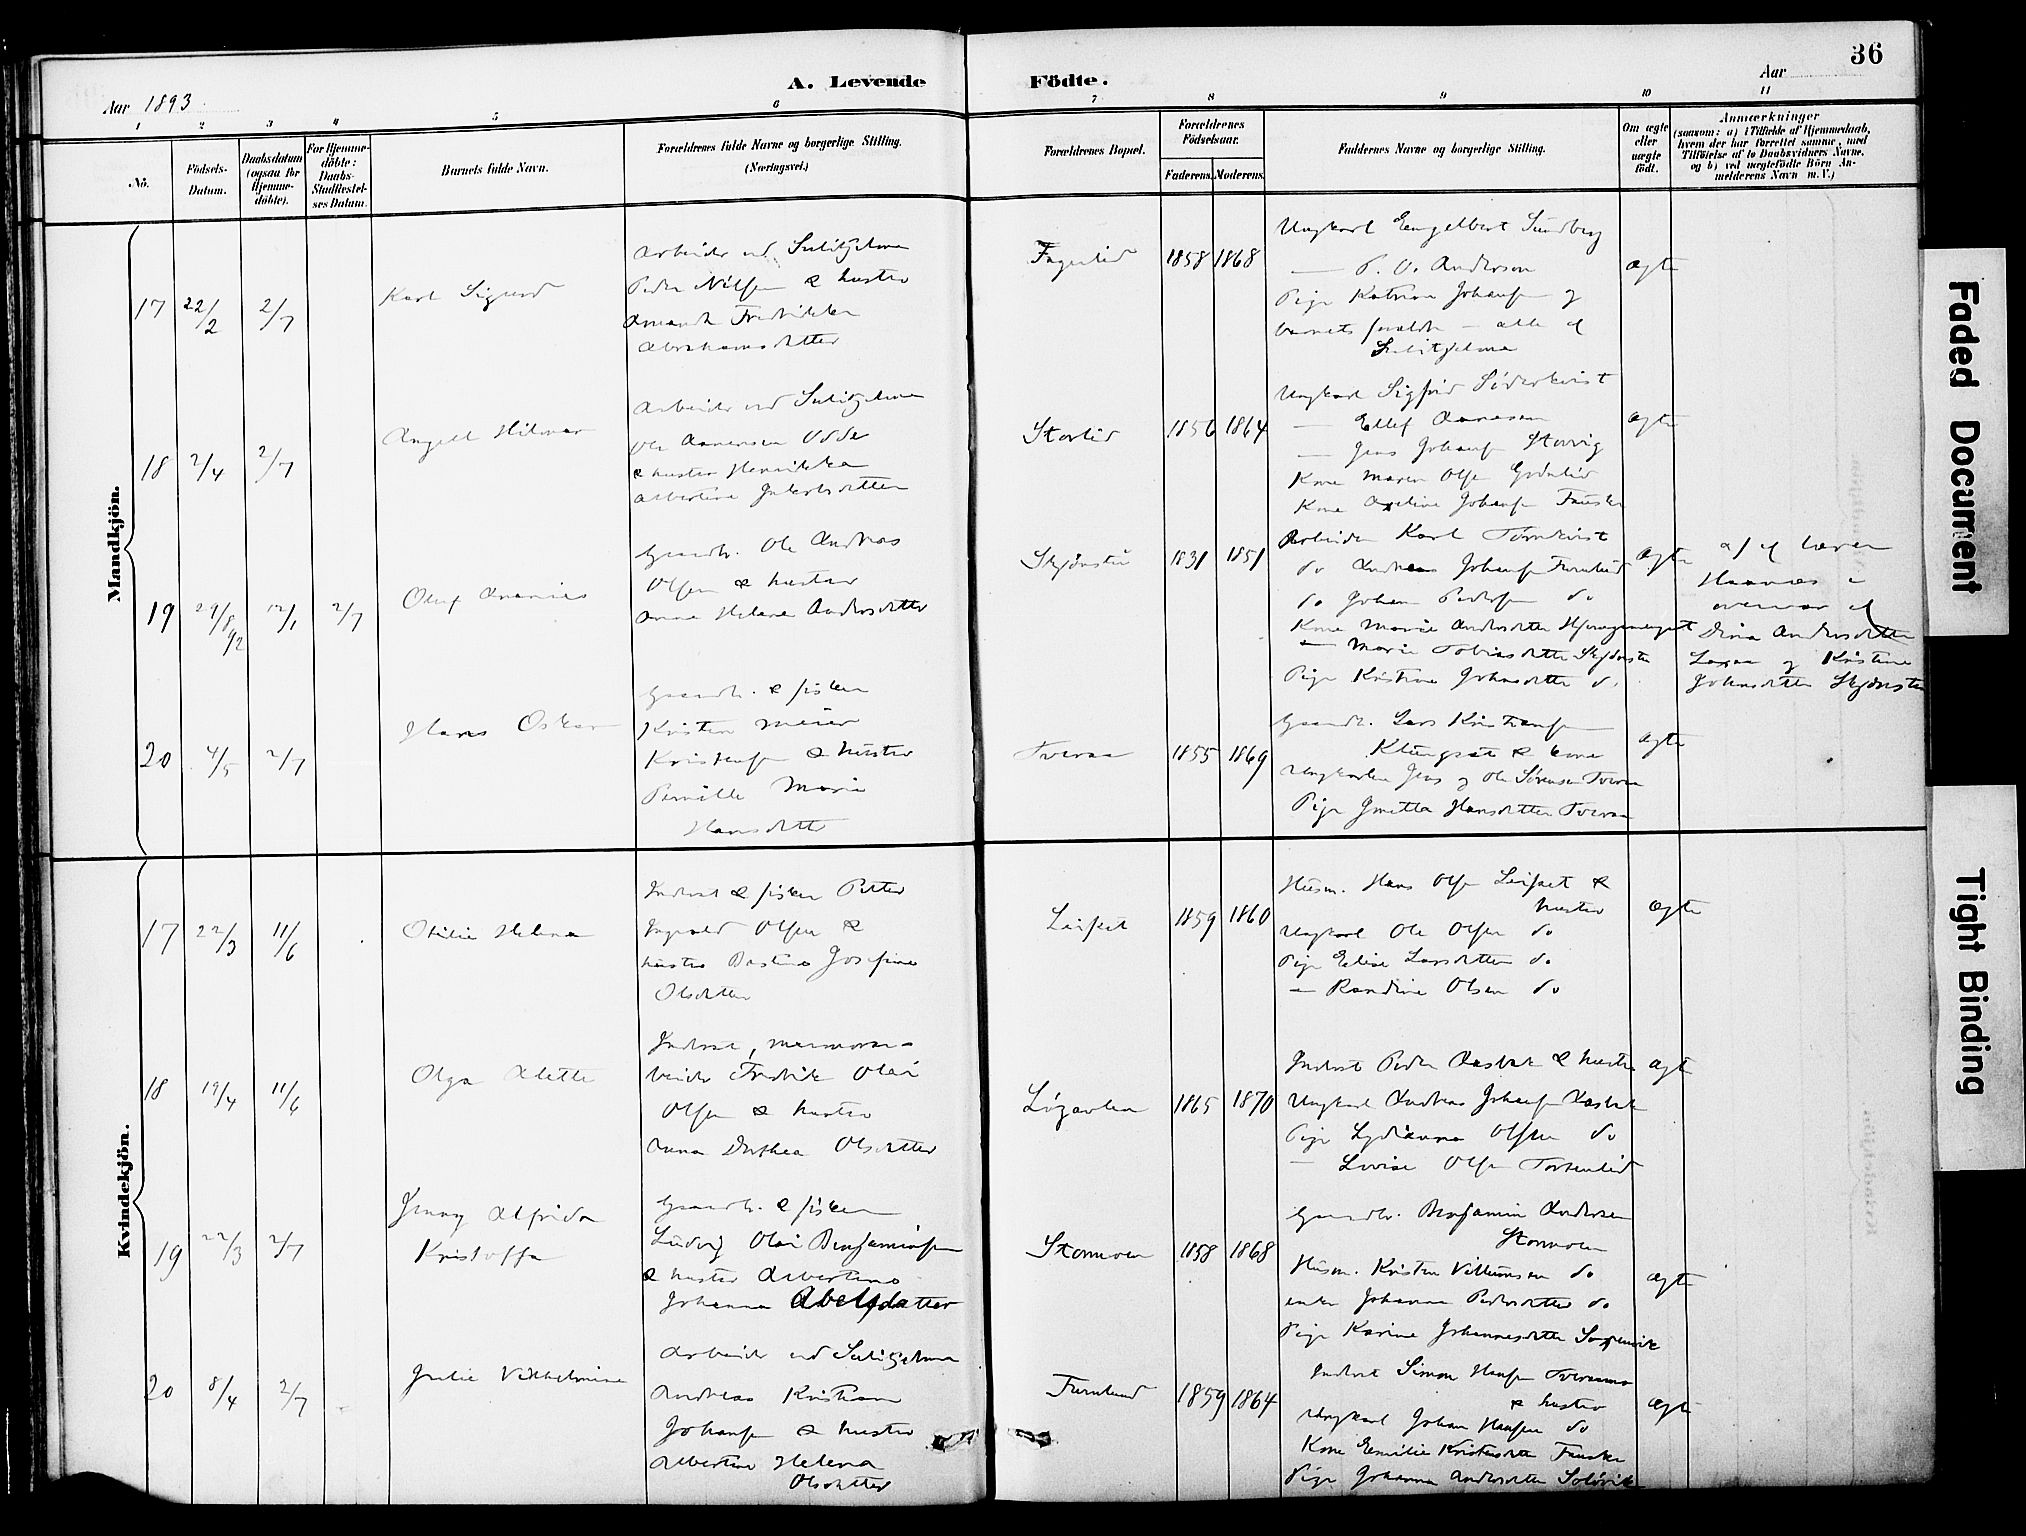 36
A. Levende Födte.
Aar 1893
Aar
1 2 3 4 5 6 7 8 9 10 11
No.
Födsels-Datum.
Daabsdatum (ogsaa for Hjemme-döbte).
For Hjemme-döbte: Daabs-Stadfæstel-ses Datum.
Barnets fulde Navn.
Forældrenes fulde Navne og borgerlige Stilling.
(Næringsvei.)
Forældrenes Bopæl.
Forældrenes Födselsaar.
Faderens. Moderens.
Faddernes Navne og borgerlige Stilling.
Om ægte eller uægte födt.
Anmærkninger
(saasom: a) i Tilfælde af Hjemmedaab, hvem der har forrettet samme, med Tilföielse af to Daabsvidners Navne, og b) ved uægtefödte Börn An-melderens Navn m. V.)
Mandkjön.
17 22/2 2/7 Karl Sigurd
Arbeider ved Sulitjelma
Peder Nilsen & hustru
Amanda Fredrikka
Abrahamsdatter
Fagerlid 1858 1868
Ungkarl Engelbert Sundberg
— P. O. Anderson
Pige Katrine Johansen og
barnets foreldre — alle af
Sulitjelma
ægte
18 2/4 2/7 Angell Hilmar
Arbeider ved Sulitjelma
Ole Aanensen
& hustru Henrikka
Albertine Jakobsdatter
Storlid 1856 1864
Ungkarl Sigfrid Söderkvist
— Ellef Aanesen
— Jens Johansen Storvig
Kone Maren Olsen Grönlid
Kone Axeline Johansen Fauske
ægte
19 29/8 92 12/1 2/7 Oluf Ananias
Gaardbr. Ole Andreas
Olsen & hustru
Anna Helena Andersdatter
Skjönstu 1831 1851
Arbeider Karl Törnkvist
do Andreas Johansen Furulund
do Johan Pedersen do
Kone Marie Andersdatter
— Marie Tobiasdatter Skjönstu
Pige Kristine Johnsdatter do
ægte
a) af lærer
Haanes i
overvær af
Dina Andersdatter
og Kristine
Johnsdatter Skjönstu
20 4/5 2/7 Hans Oskar
Gaardbr. & fisker
Kristen Meier
Kristensen & hustru
Pernille Marie
Hansdatter
Tveraa 1855 1869
Gaardb. Lars Kristiansen
Klungset & kone
Ungkarlene Jens og Ole Sörensen Tveraa
Pige Hansdatter Tveraa
ægte
Kvindekjön.
17 22/3 11/6 Otilie Helena
Inderst & fisker Petter
Ingvald Olsen &
hustru Bastine Josefine
Olsdatter
Leifset 1859 1860
Husm. Hans Olsen Leifset &
hustru
Ungkarl Ole Olsen do
Pige Elise Larsdatter do
— Randine Olsen do
ægte
18 19/4 11/6 Olga Alette
Inderst, marmorar-
beider Fredrik Olai
Olsen & hustru
Anna Dorthea Olsdatter
Lögavlen 1865 1870
Inderst Peder Aasbak & hustru
Ungkarl Andreas Johansen Aasbak
Pige Lydianna Olsen do
— Lovise Olsen Tortenlid
ægte
19 22/3 2/7 Jenny Alfrida
Kristoffa
Gaardb. & fisker
Ludvig Olai Benjaminsen
& hustru Albertine
Johanna Abelsdatter
Stormoen 1858 1868
Gaardbr. Benjamin Andersen
Stormoen
Husm. Kristen Villumsen do
enke Johanna Pedersdatter do
Pige Karine Johannesdatter
ægte
20 8/4 2/7 Julie Vilhelmine
Arbeider ved Sulitjelma
Andreas Kristian
Johansen & hustru
Albertine Helena
Olsdatter
Furulund 1859 1864
Inderst Simon Hansen Tveraamo
& hustru
Ungkarl Johan Hansen do
Kone Emilie Kristensdatter Fauske
Pige Johanna Andersdatter Solövik
ægte
Faded Document
Tight Binding